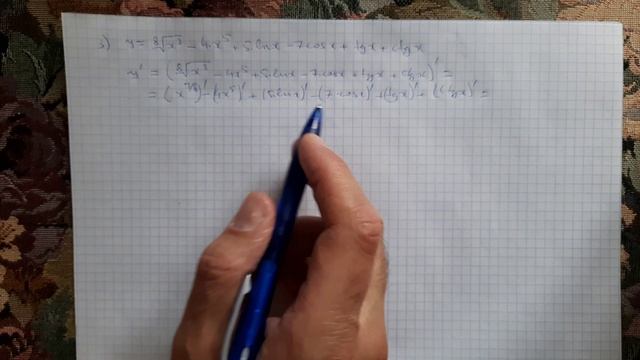 3) y = ⁸√x³ - 4x⁵ + 5lnx - 7cosx + tgx + ctgx
y' = (⁸√x³ - 4x⁵ + 5lnx - 7cosx + tgx + ctgx)' =
= (x^3/8)' - (4x⁵)' + (5lnx)' - (7cosx)' + (tgx)' + (ctgx)' =